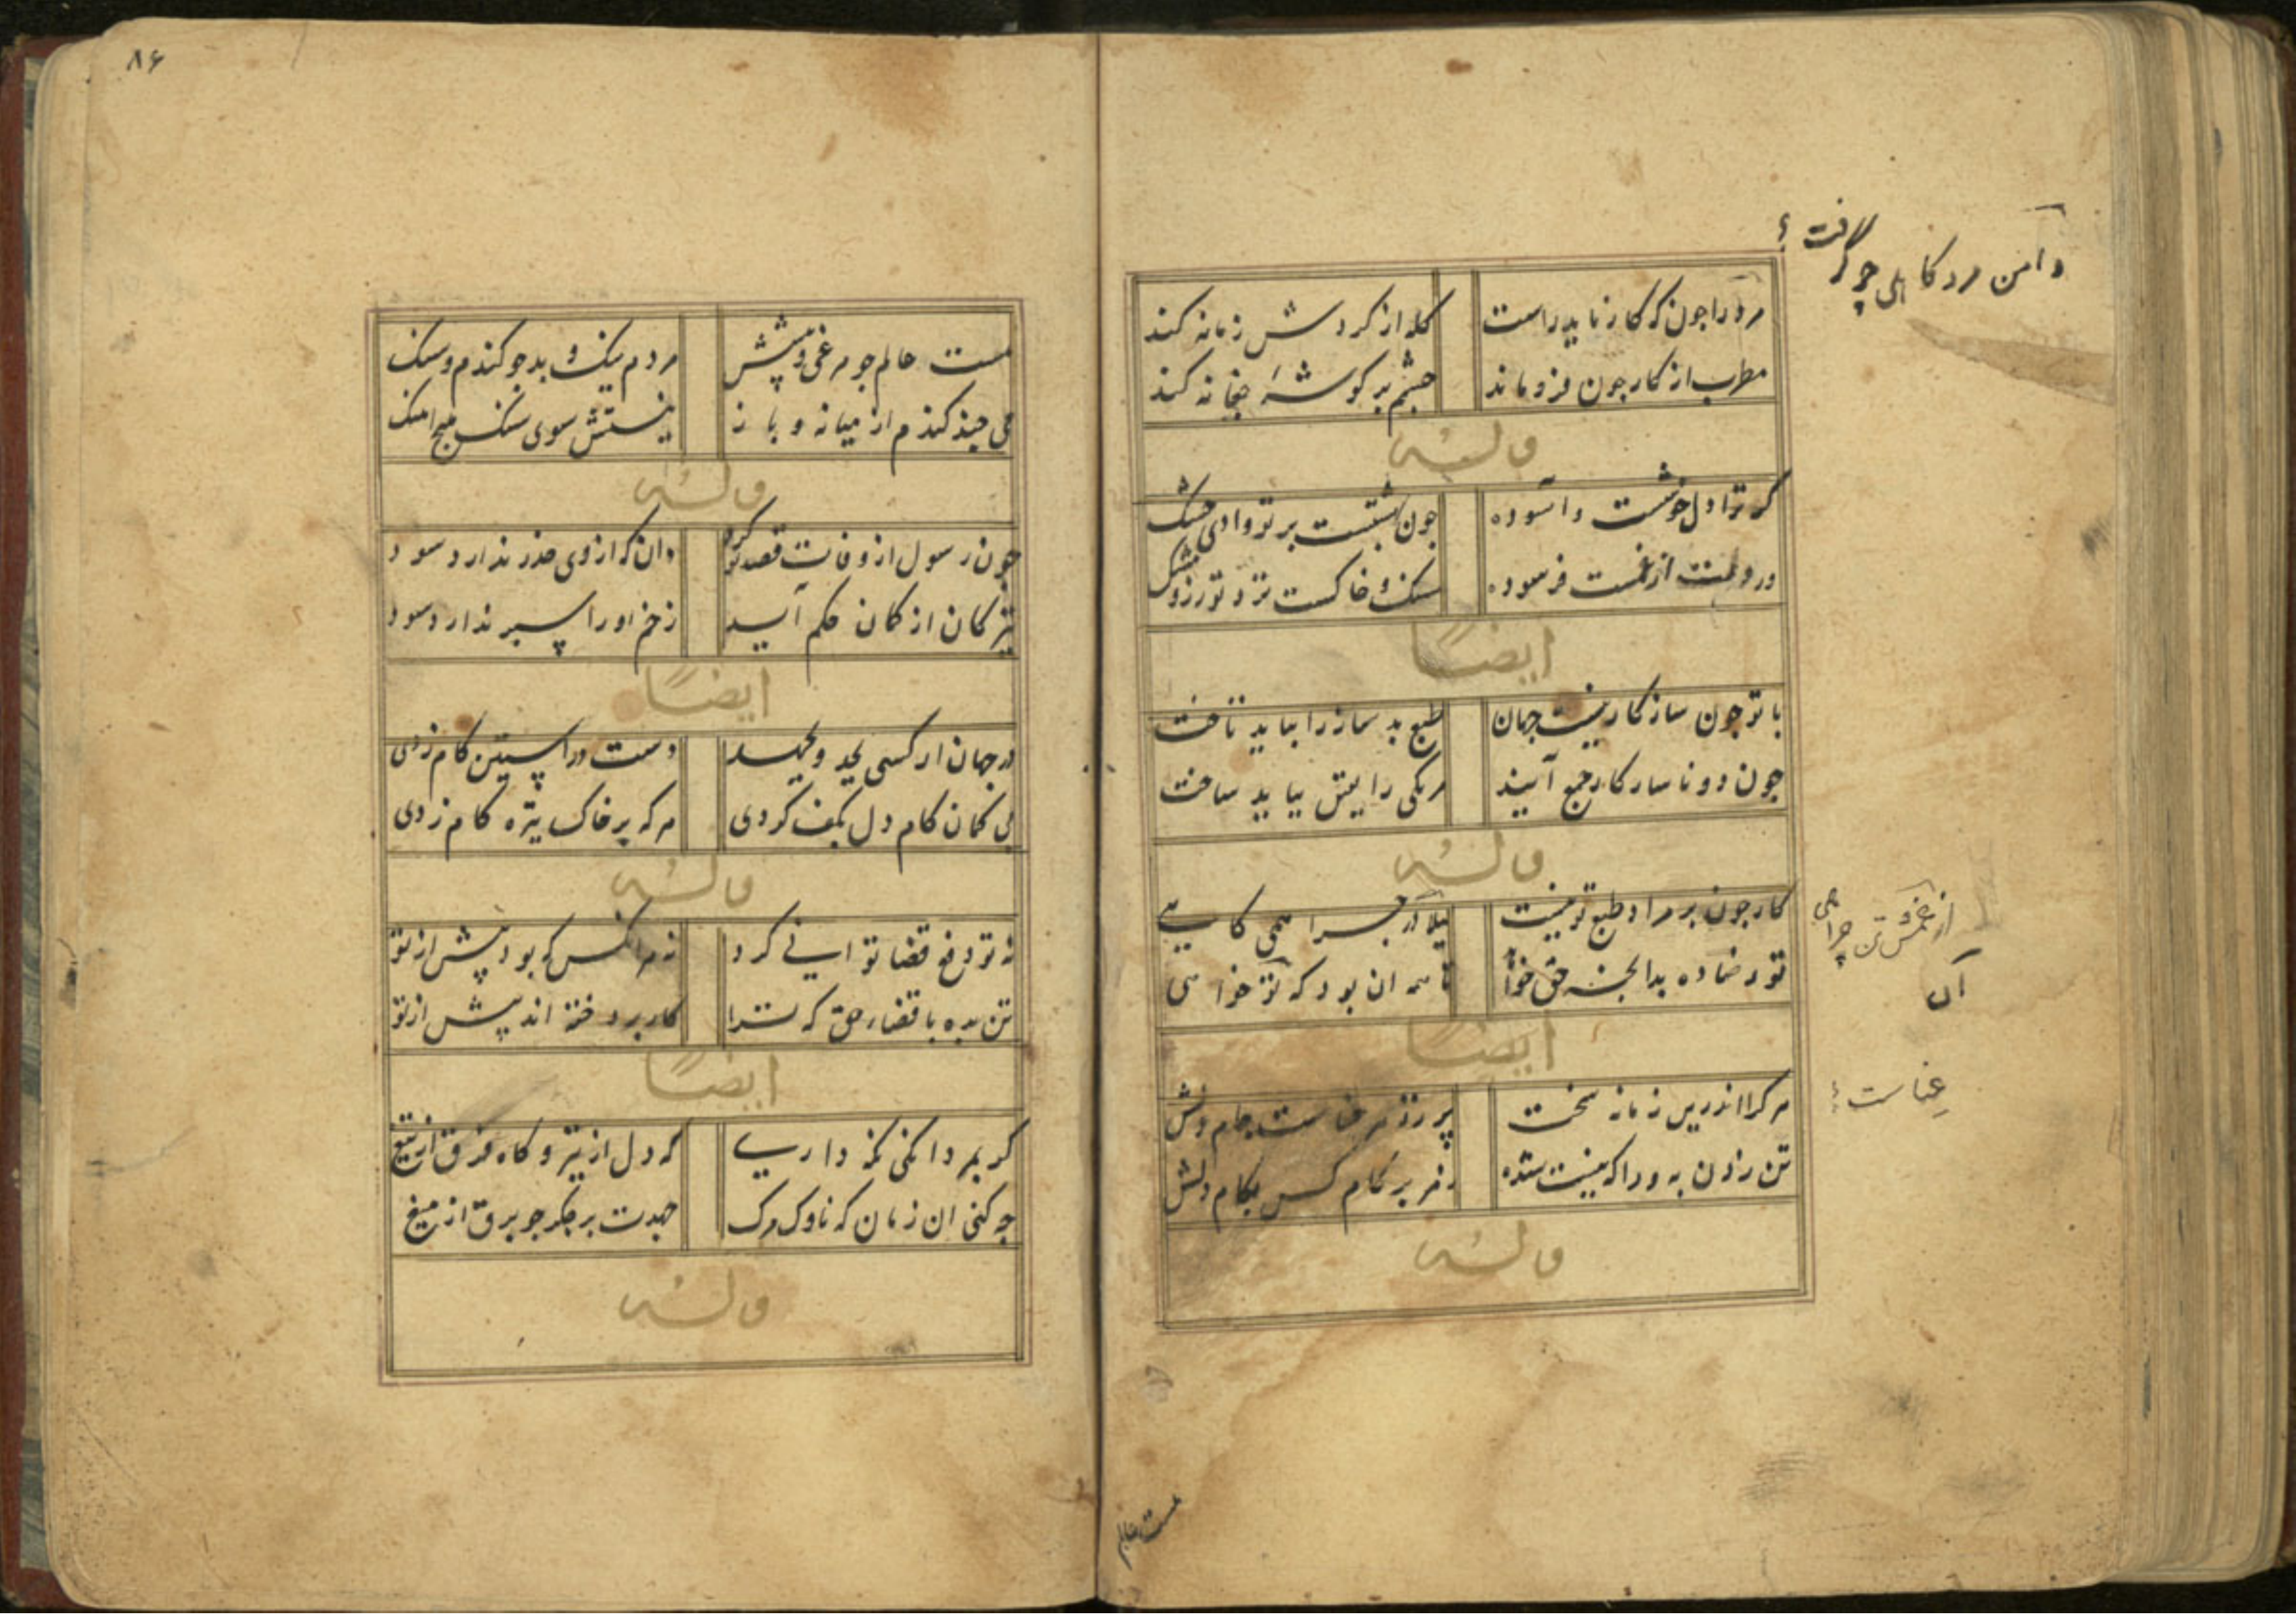 دامن مرد کاهلی چو گرفت؟
مرد را جون که کار ناید راست کله از کردش زمانه کند
مطرب از کار جون فرو ماند خشم بر کوشهٔ جغانه کند
وله
کر ترا دل خوشست و آسوده جون بهشتست بر تو وادی خشک
ور دلت از غمست فرسوده سنک و خاکست نزد تو زر و مشک
ایضاً
با تو جون سازکار نیست جهان طبع بد ساز را نباید تاخت
جون دو ناسازکار جمع آیند هر یکی را بیش بباید ساخت
وله
کار جون بر مراد طبع تو نیست جرا همی کاهی
تو رضا ده بدانجه حق خواهد تا همه ان بود که تو خواهی
از غمش تن چرا همی
آں
ایضاً
هر کرا اندرین زمانه سخت پر ز زهر جام دلش
تن زدن به ورا که نیست شده دهر بر کام کس بکام دلش
عناست؟
وله
هست عالم
۸۶
هست عالم جو مرغی و پیشش مردم نیک و بد جو کندم و سنک
می جیند کندم از میانه و باز نیستش سوی سنک هیچ اهنک
وله
جون رسول از وفات قصد تو کرد دان که از وی حذر ندارد سود
تیز کان از کمان حکم آید زخم او را سپر ندارد سود
ایضاً
در جهان ار کسی بجد و بجهد دست در استین کام زدی
بی کمان کام دل بکف کردی هر که بر خاک تیره کام زدی
وله
نه تو دفع قضا توانی کرد نه هر انکس که بود پیش از تو
تن بده با قضاء حق که ترا کار بر دوخته اند پیش از تو
ایضاً
کیرم دانکنی نکه داری که دل از تیر و کاه فرق از تیغ
جه کنی ان زمان که ناوک مرک جهدت بر جکر جو برق از میغ
وله